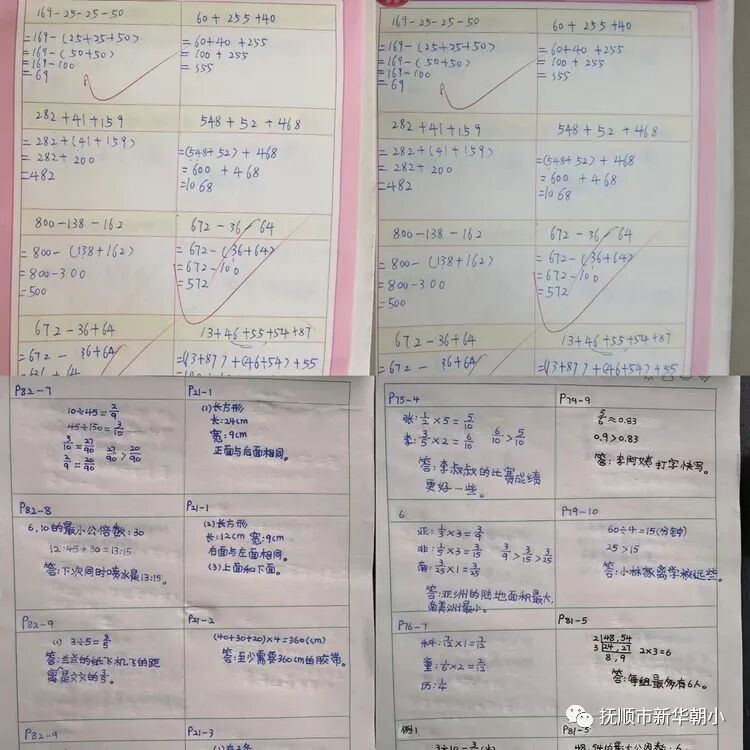 169-25-25-50
=169-(25+25+50)
=169-(50+50)
=169-100
=69
60+255+40
=60+40+255
=100+255
=355
282+41+159
=282+(41+159)
=282+200
=482
548+52+468
=(548+52)+468
=600+468
=1068
800-138-162
=800-(138+162)
=800-300
=500
672-36-64
=672-(36+64)
=672-100
=572
672-36+64
=672-36+64
13+46+55+54+87
=(13+87)+(46+54)+55
169-25-25-50
=169-(25+25+50)
=169-(50+50)
=169-100
=69
60+255+40
=60+40+255
=100+255
=355
282+41+159
=282+(41+159)
=282+200
=482
548+52+468
=(548+52)+468
=600+468
=1068
800-138-162
=800-(138+162)
=800-300
=500
672-36-64
=672-(36+64)
=672-100
=572
672-36+64
=672-36+64
13+46+55+54+87
=(13+87)+(46+54)+55
P82-7
10÷45=2/9
45÷150=3/10
3/10=27/90 27/90>20/90
2/9=20/90
P21-1
(1)长方形
长:24cm
宽:9cm
正面与后面相同。
P82-8
6,10的最小公倍数:30
12:45+30=13:15
答:下次同时喷水是13:15。
P21-1
(2)长方形
长:12cm 宽:9cm
右面与左面相同。
(3)上面和下面。
P82-9
(1) 3÷5=3/5
答:兰兰的纸飞机飞的距
离是文文的3/5。
P21-2
(40+30+20)×4=360(cm)
答:至少需要360cm的胶带。
P82-9
P21-3
P75-4
张:1/2×5=5/10
李:3/5×2=6/10 6/10>5/10
答:李叔叔的比赛成绩
更好一些。
P79-9
5/6≈0.83
0.9>0.83
答:李阿姨打字快写。
6
亚:1/3×3=3/9
非:1/5×3=3/15 3/9>3/15>3/25
南:3/25×1=3/25
答:亚洲的陆地面积最大,
南美洲最小。
P79-10
60÷4=15(分钟)
25>15
答:小林家离学校远些。
P76-7
科:7/12×1=7/12
童:1/6×2=2/12
历:1/4
P81-5
2 48,54
3 24,27 2×3=6
8,9
答:每组最多有6人。
例1
P81-5
抚顺市新华朝小